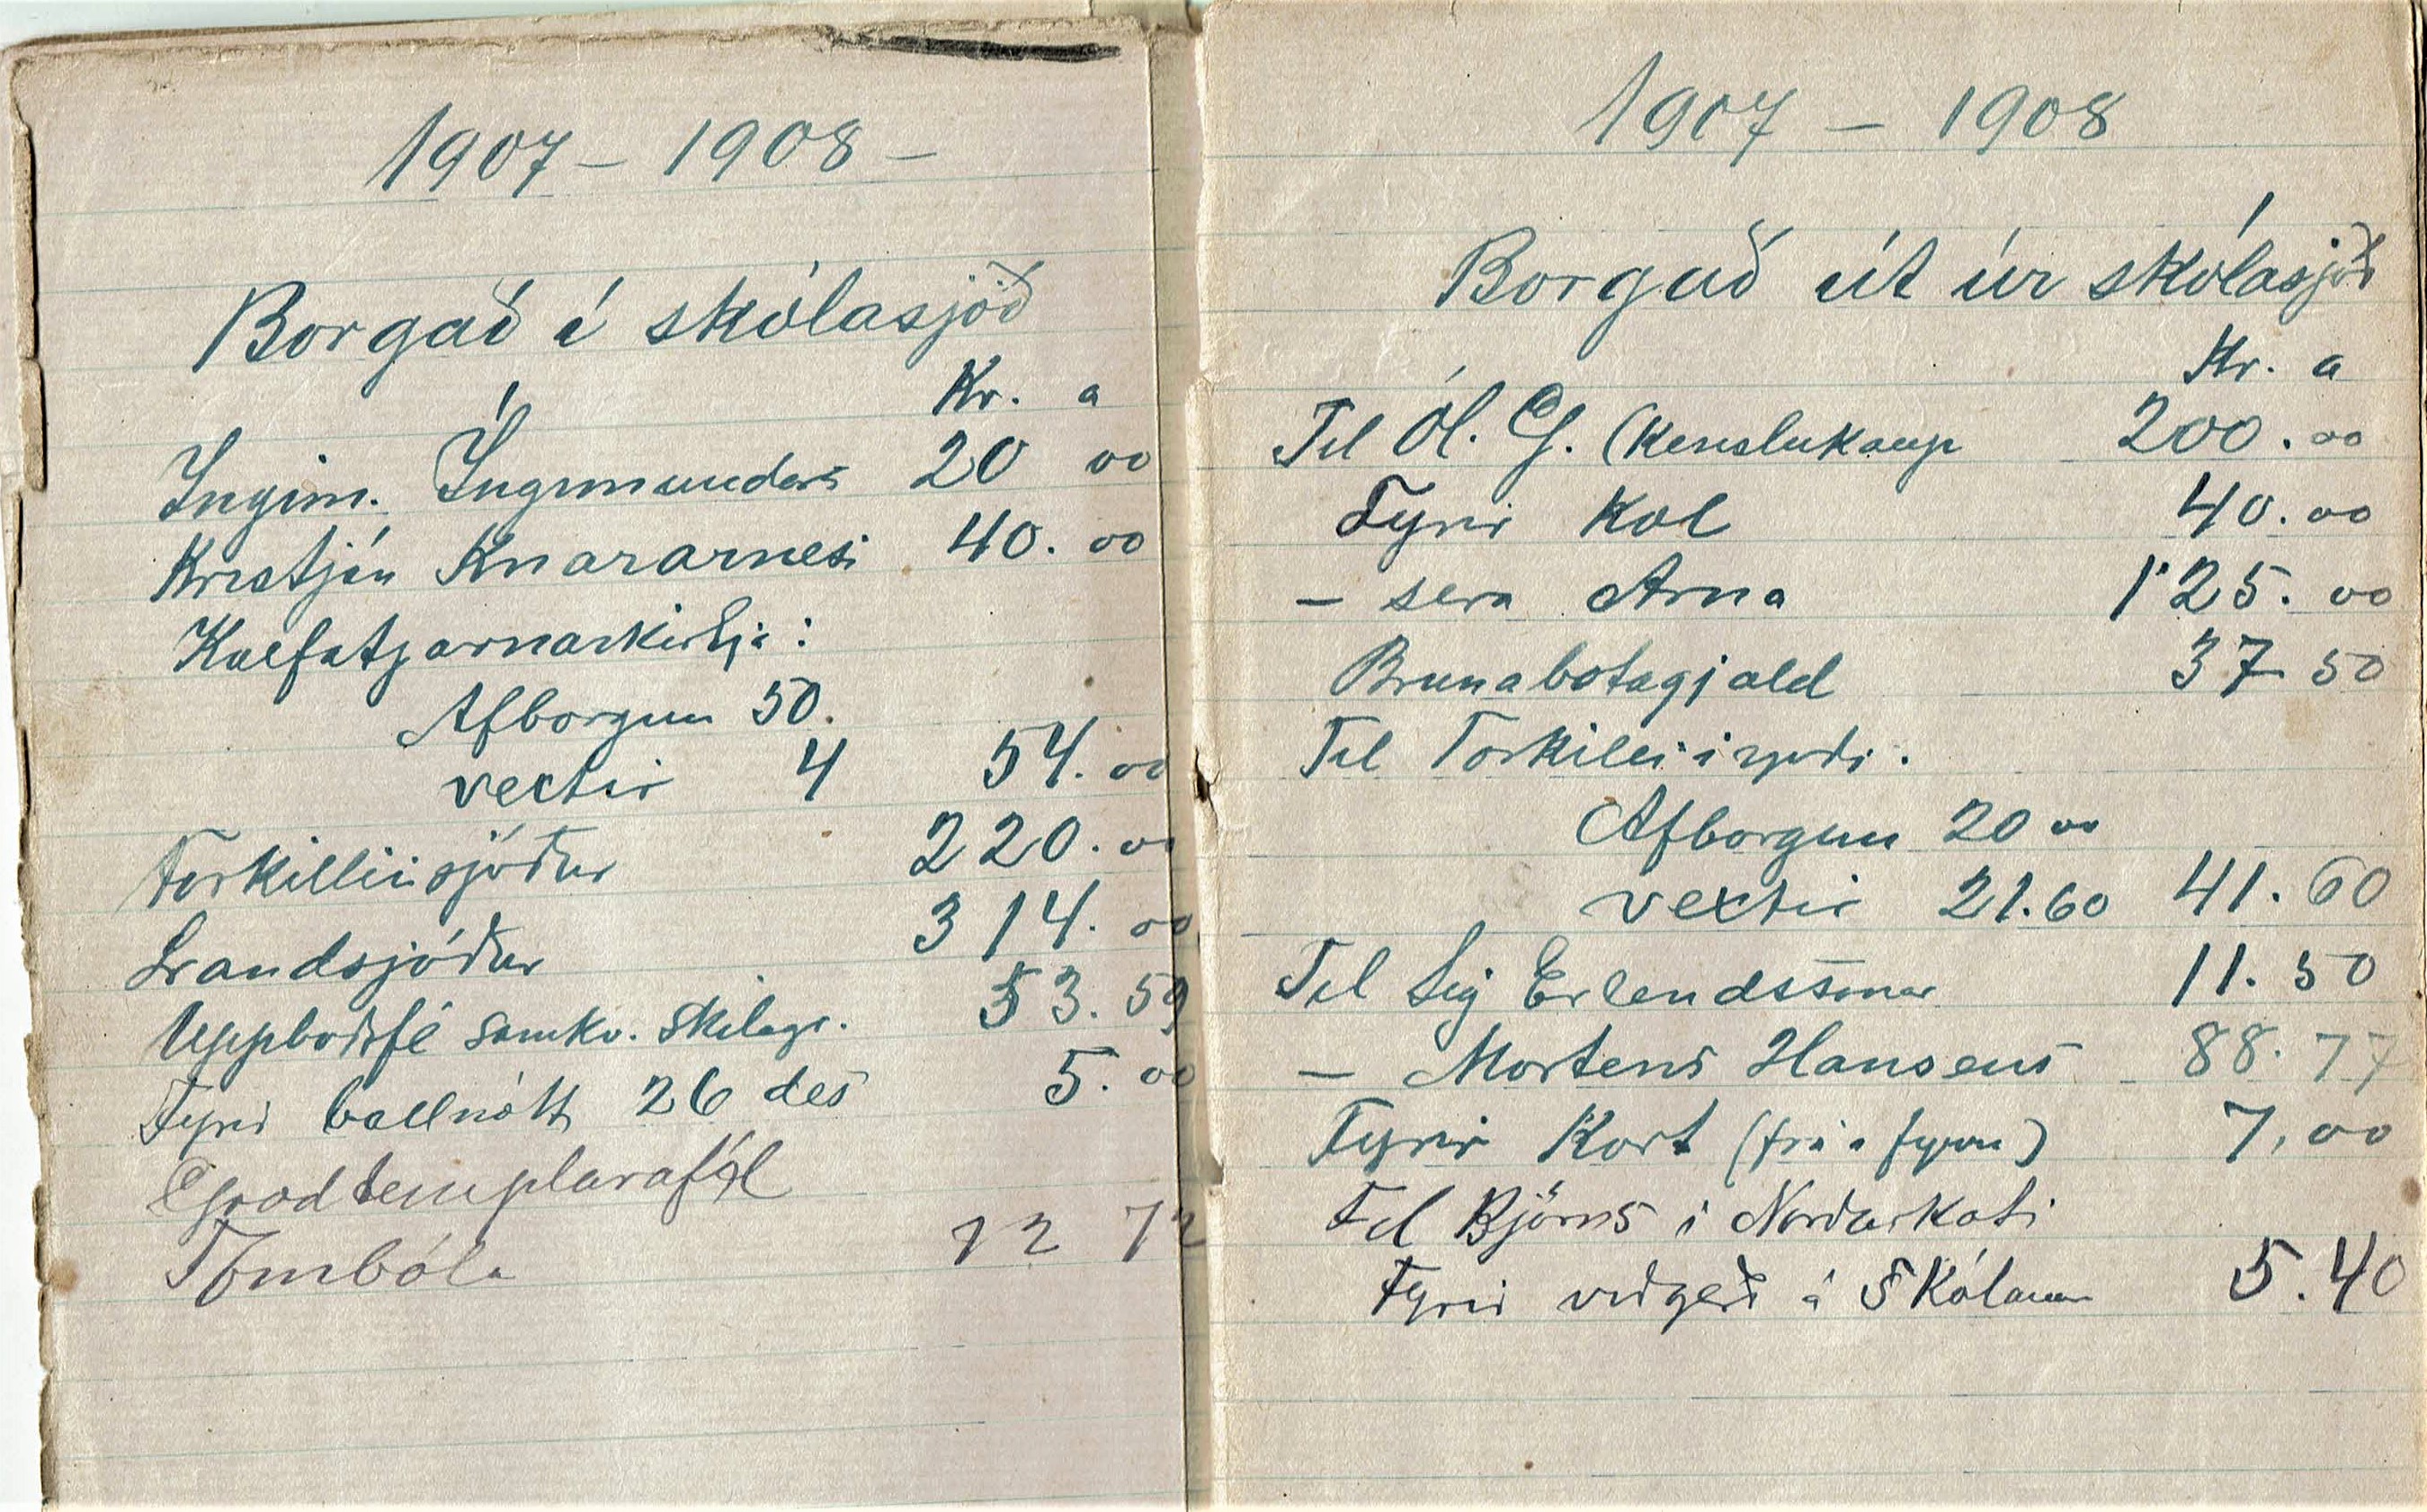 1907 – 1908 –
Borgað í skólasjóð
Kr. a
Ingim. Ingimundars 20 00
Kristján Knararnesi 40. 00
Kalfatjarnarkirkja:
Afborgun 50.
vextir 4 54. 00
Torkilliisjóður 220. 00
Landsjóður 314. 00
Uppboðsfé samkv. skilagr. 53. 59
Fyrir ballnótt 26 des 5. 00
Goodtemplarafél
Tombóla 72
1907 – 1908
Borgað út úr skólasjóð
Kr. a
Til Ól. G. (Kenslukaup 200. 00
Fyrir Kol 40. 00
– sera Arna 125. 00
Brunabotagjald 37 50
Til Torkillii
Afborgun 20 00
vextir 21.60 41. 60
Til Sig Erlendssonar 11. 50
– Mortens Hansens 88. 77
Fyrir Kort (frá ) 7, 00
Til Björns í Norðurkoti
Fyrir viðgerð á Skólanum 5.40